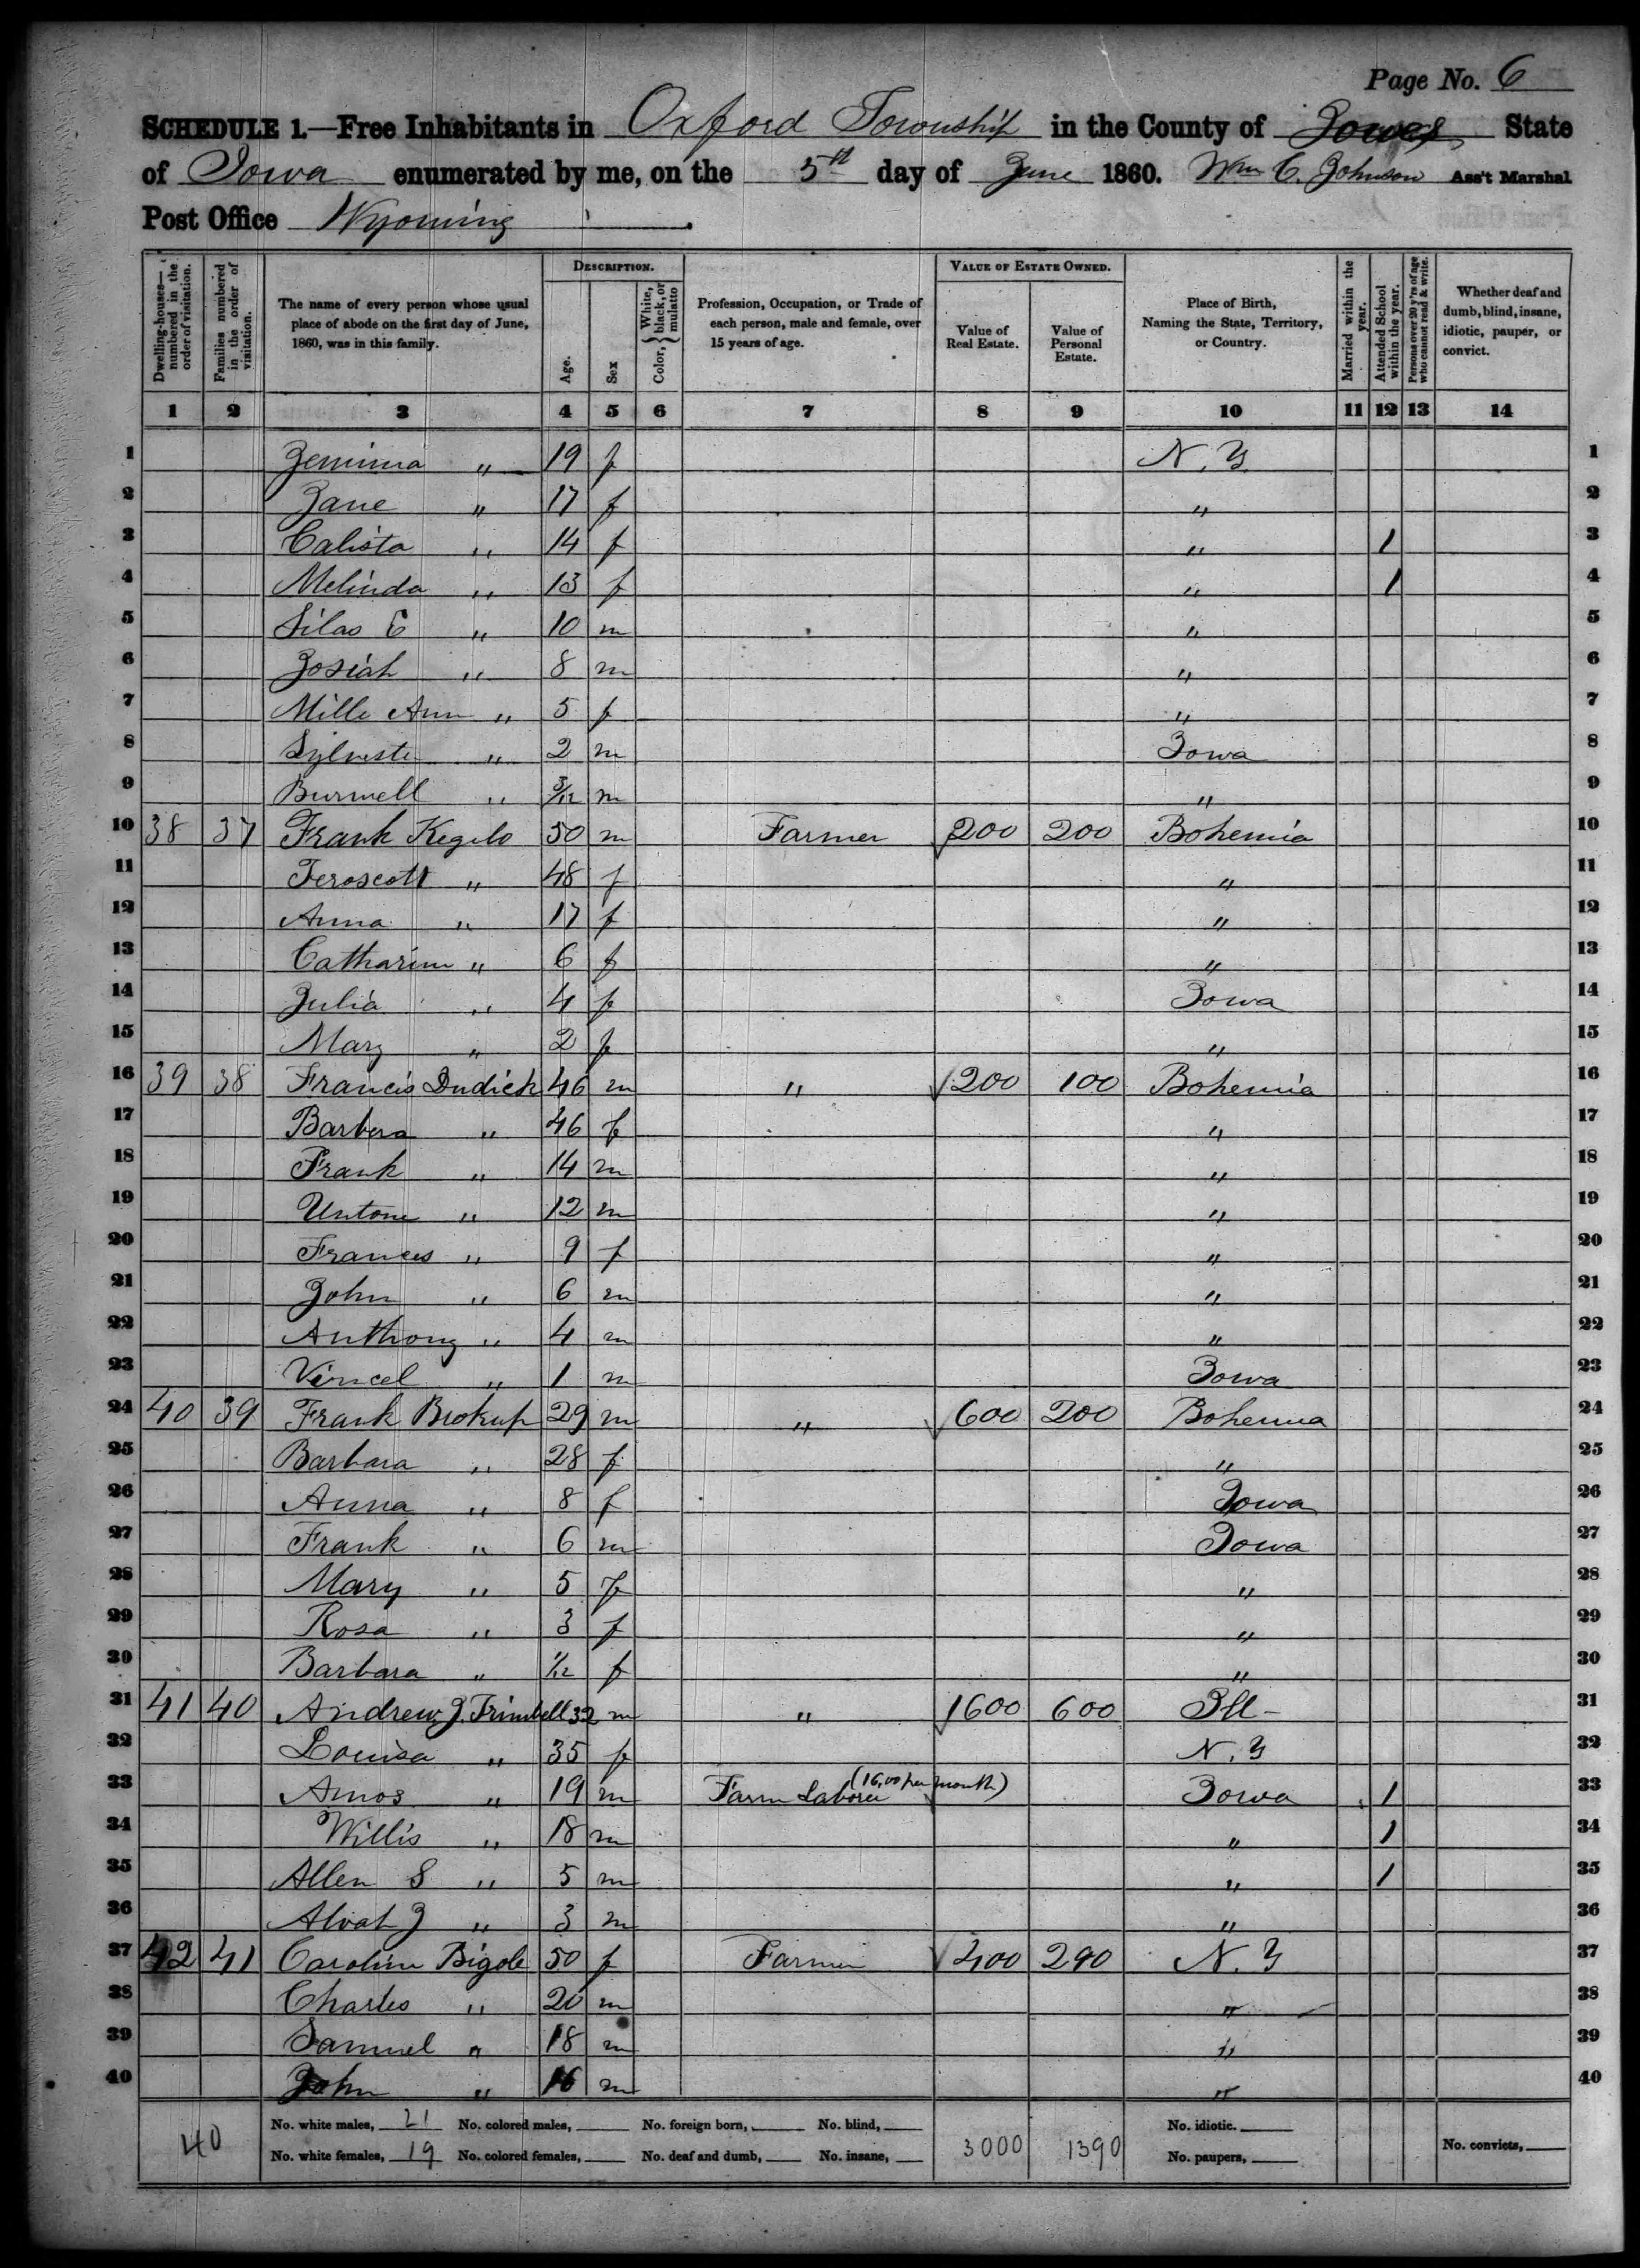 Page No. 6
SCHEDULE 1.—Free Inhabitants in Oxford Township in the County of Jones State
of Iowa enumerated by me, on the 5th day of June 1860. Wm C. Johnson Ass't Marshal
Post Office Wyoming
Dwelling-houses—numbered in the order of visitation.
Families numbered in the order of visitation.
The name of every person whose usual place of abode on the first day of June, 1860, was in this family.
DESCRIPTION.
Age.
Sex
Color, { White, black, or mulatto
Profession, Occupation, or Trade of each person, male and female, over 15 years of age.
VALUE OF ESTATE OWNED.
Value of Real Estate.
Value of Personal Estate.
Place of Birth, Naming the State, Territory, or Country.
Married within the year.
Attended School within the year.
Persons over 20 y'rs of age who cannot read & write.
Whether deaf and dumb, blind, insane, idiotic, pauper, or convict.
1 2 3 4 5 6 7 8 9 10 11 12 13 14
1 Jemima " 19 f N. Y 1
2 Jane " 17 f " 2
3 Calista " 14 f " 1 3
4 Melinda " 13 f " 1 4
5 Silas E " 10 m " 5
6 Josiah " 8 m " 6
7 Mille Ann " 5 f " 7
8 Sylveste " 2 m Iowa 8
9 Burwell " 3/12 m " 9
10 38 37 Frank Kegilo 50 m Farmer 200 200 Bohemia 10
11 Feroscott " 48 f " 11
12 Anna " 17 f " 12
13 Catharine " 6 f " 13
14 Julia " 4 f Iowa 14
15 Mary " 2 f " 15
16 39 38 Francis Dudick 46 m " 200 100 Bohemia 16
17 Barbera " 46 f " 17
18 Frank " 14 m " 18
19 Untone " 12 m " 19
20 Frances " 9 f " 20
21 John " 6 m " 21
22 Anthony " 4 m " 22
23 Vincel " 1 m Iowa 23
24 40 39 Frank Brokup 29 m " 600 200 Bohemia 24
25 Barbara " 28 f " 25
26 Anna " 8 f Iowa 26
27 Frank " 6 m Iowa 27
28 Mary " 5 f " 28
29 Rosa " 3 f " 29
30 Barbara " 1/12 f " 30
31 41 40 Andrew J. Trimbell 32 m " 1600 600 Ill - 31
32 Louisa " 35 f N. Y 32
33 Amos " 19 m Farm Laborer (16.00 per month) Iowa 1 33
34 Willis " 18 m " 1 34
35 Allen S " 5 m " 1 35
36 Alvah J " 3 m " 36
37 42 41 Caroline Bigole 50 f Farmer 400 290 N. Y 37
38 Charles " 20 m " 38
39 Samuel " 18 m " 39
40 John " 16 m " 40
40 No. white males, 21 No. colored males, No. foreign born, No. blind, 3000 1390 No. idiotic.
No. white females, 19 No. colored females, No. deaf and dumb, No. insane, No. paupers, No. convicts,